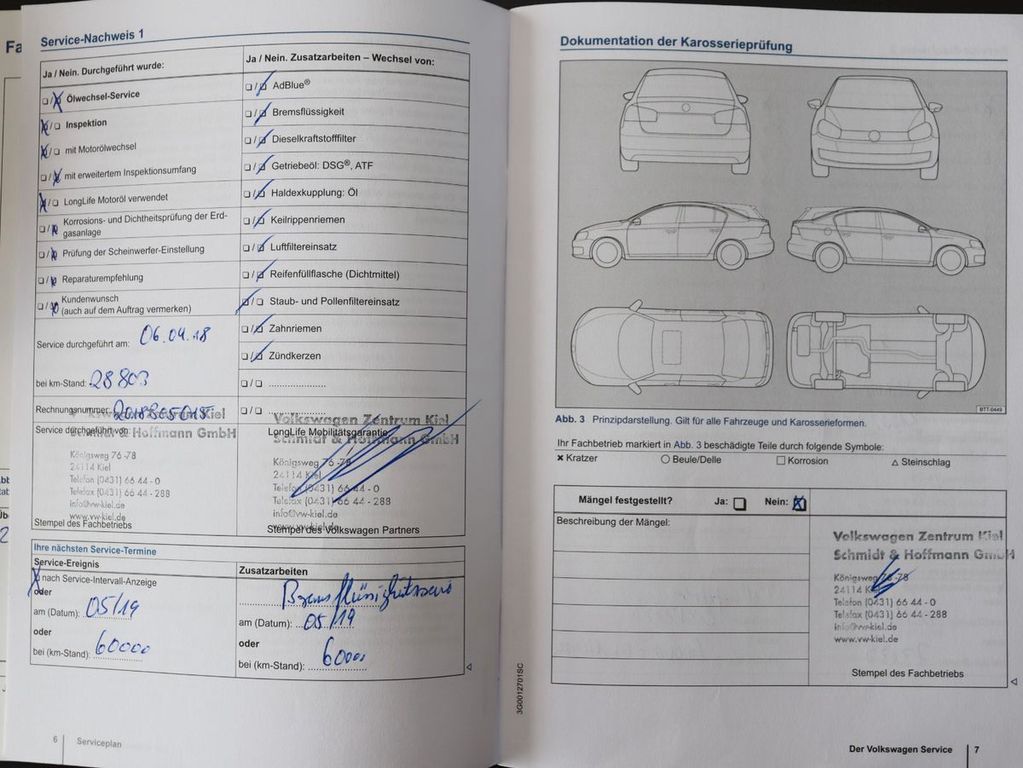 Fa
Service-Nachweis 1
Ja / Nein. Durchgeführt wurde:
Ölwechsel-Service
Inspektion
mit Motorölwechsel
mit erweitertem Inspektionsumfang
LongLife Motoröl verwendet
Korrosions- und Dichtheitsprüfung der Erd-
gasanlage
Prüfung der Scheinwerfer-Einstellung
Reparaturempfehlung
Kundenwunsch
(auch auf dem Auftrag vermerken)
Service durchgeführt am: 06.04.18
bei km-Stand: 28803
Rechnungsnummer:
Service durchgeführt von:
Schmidt & Hoffmann GmbH
Königsweg 76-78
24114 Kiel
Telefon (0431) 66 44 - 0
Telefax (0431) 66 44 - 288
info@vw-kiel.de
www.vw-kiel.de
Stempel des Fachbetriebs
Ja / Nein. Zusatzarbeiten – Wechsel von:
AdBlue®
Bremsflüssigkeit
Dieselkraftstofffilter
Getriebeöl: DSG®, ATF
Haldexkupplung: Öl
Keilrippenriemen
Luftfiltereinsatz
Reifenfüllflasche (Dichtmittel)
Staub- und Pollenfiltereinsatz
Zahnriemen
Zündkerzen
Volkswagen Zentrum Kiel
LongLife Mobilitätsgarantie
Schmidt & Hoffmann GmbH
Königsweg 76-78
24114 Kiel
Telefon (0431) 66 44 - 0
Telefax (0431) 66 44 - 288
info@vw-kiel.de
www.vw-kiel.de
Stempel des Volkswagen Partners
Ihre nächsten Service-Termine
Service-Ereignis
nach Service-Intervall-Anzeige
oder
am (Datum): 05/19
oder
bei (km-Stand): 60000
Zusatzarbeiten
am (Datum): 05/19
oder
bei (km-Stand): 60000
6 Serviceplan
3G0012701SC
Dokumentation der Karosserieprüfung
BTT-0449
Abb. 3 Prinzipdarstellung. Gilt für alle Fahrzeuge und Karosserieformen.
Ihr Fachbetrieb markiert in Abb. 3 beschädigte Teile durch folgende Symbole:
Kratzer Beule/Delle Korrosion Steinschlag
Mängel festgestellt? Ja: Nein:
Beschreibung der Mängel:
Volkswagen Zentrum Kiel
Schmidt & Hoffmann GmbH
Königsweg 76-78
24114 Kiel
Telefon (0431) 66 44 - 0
Telefax (0431) 66 44 - 288
info@vw-kiel.de
www.vw-kiel.de
Stempel des Fachbetriebs
Der Volkswagen Service 7